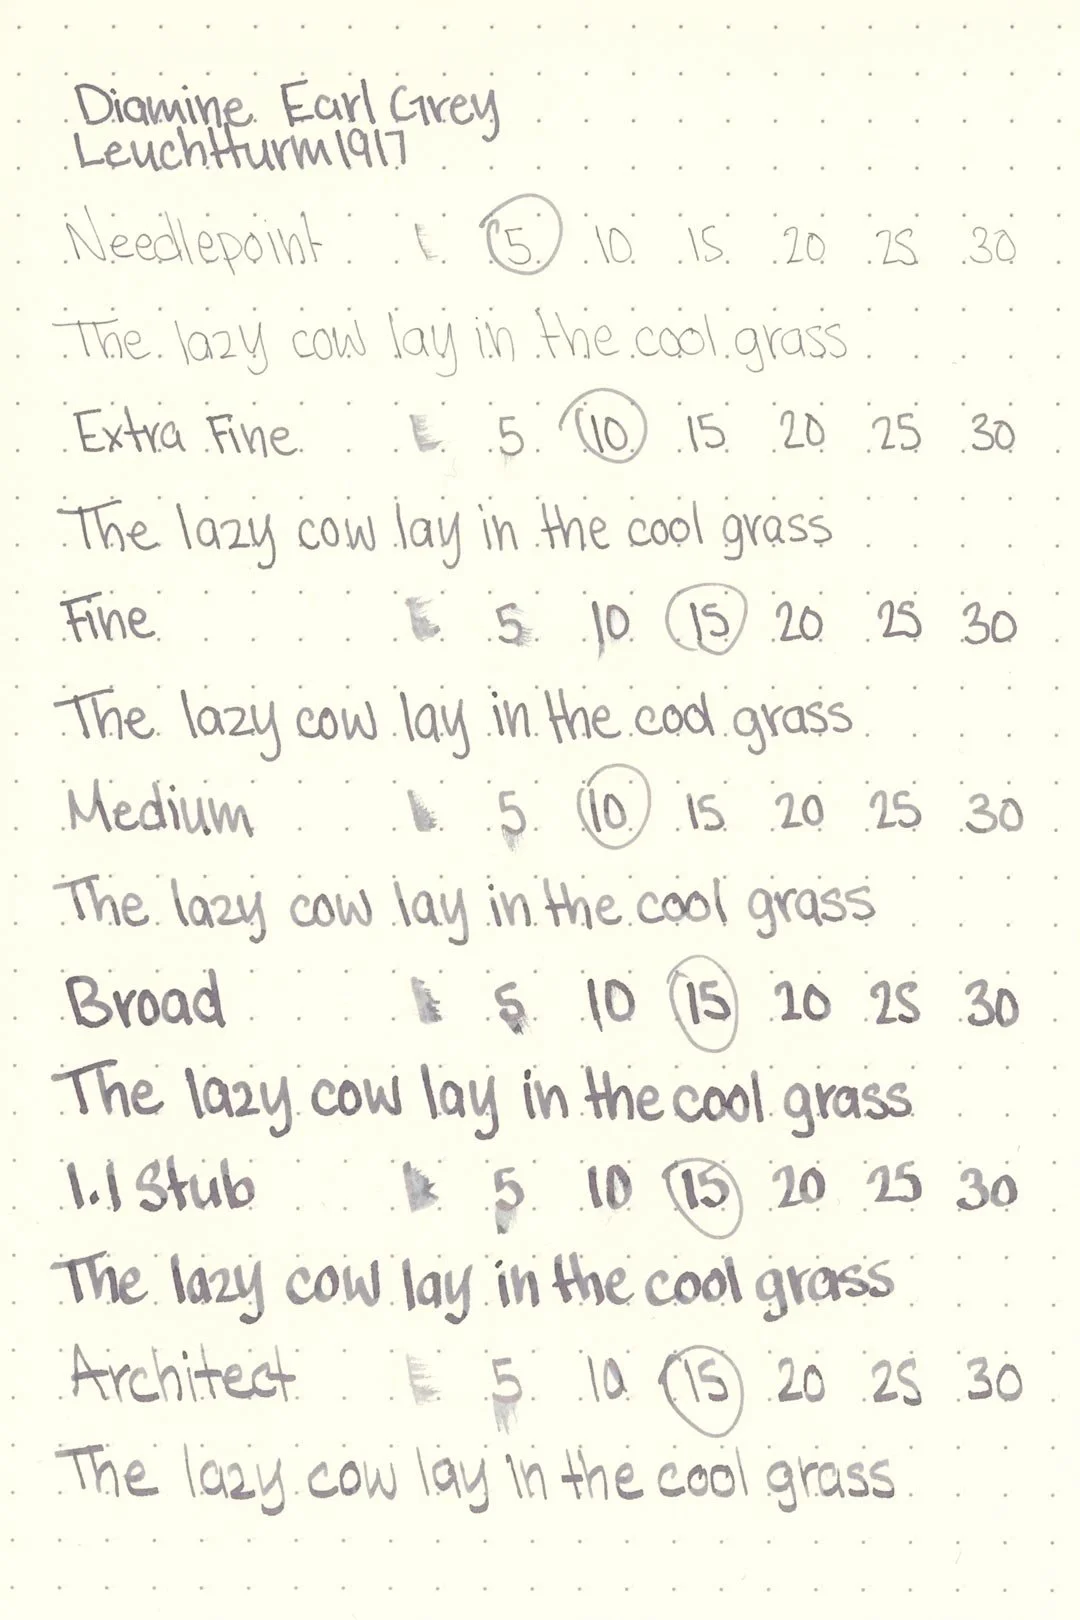 Diamine Earl Grey
Leuchtturm1917
Needlepoint 5 10 15 20 25 30
The lazy cow lay in the cool grass
Extra Fine 5 10 15 20 25 30
The lazy cow lay in the cool grass
Fine 5 10 15 20 25 30
The lazy cow lay in the cool grass
Medium 5 10 15 20 25 30
The lazy cow lay in the cool grass
Broad 5 10 15 20 25 30
The lazy cow lay in the cool grass
1.1 Stub 5 10 15 20 25 30
The lazy cow lay in the cool grass
Architect 5 10 15 20 25 30
The lazy cow lay in the cool grass